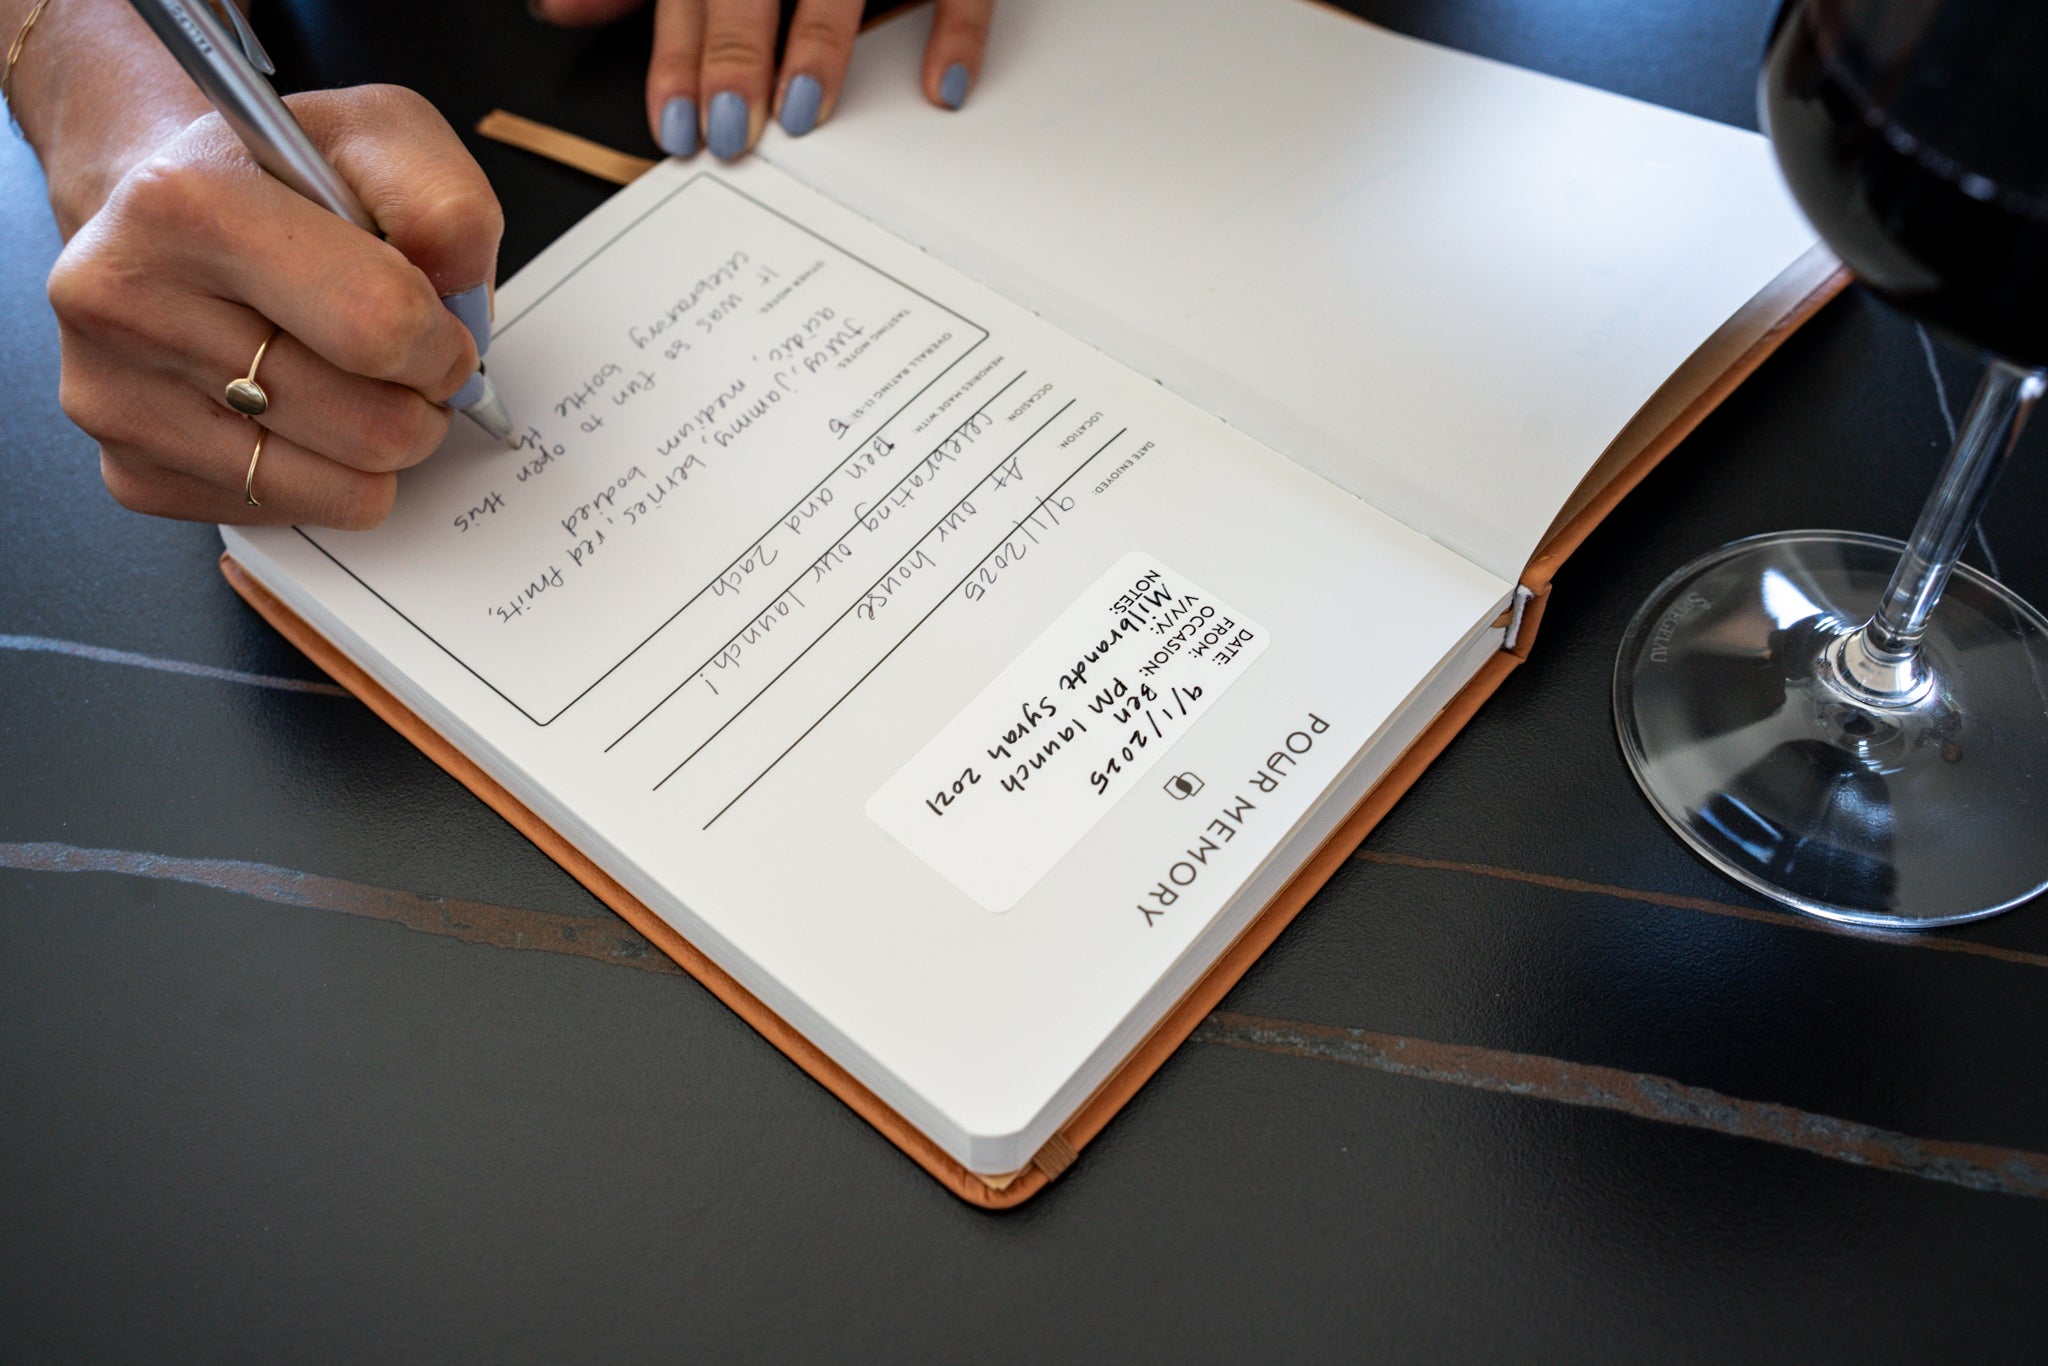 POUR MEMORY
DATE: 9/1/2025
FROM: Ben
OCCASION: PM launch
V/V/V: Milbrandt Syrah 2021
NOTES:
DATE ENJOYED: 9/1/2025
LOCATION: At our house
OCCASION: Celebrating our launch!
MEMORIES MADE WITH: Ben and Zach
OVERALL RATING (1-5): 5
TASTING NOTES:
Juicy, jammy, berries, red fruits,
acidic, medium bodied
OTHER NOTES:
It was so fun to open this
celebratory bottle th
SPIEGELAU